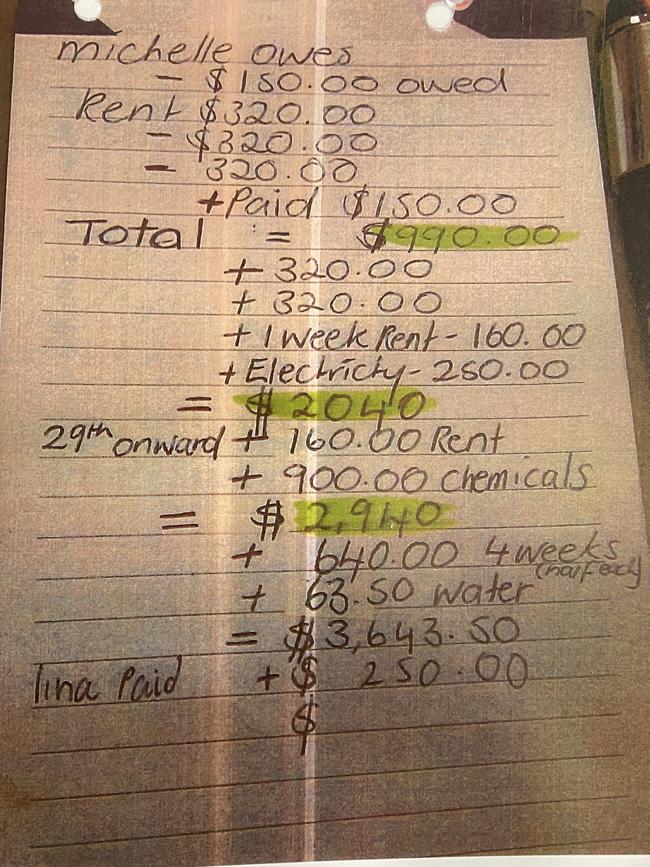 michelle owes
- $150.00 owed
Rent $320.00
- $320.00
- 320.00
+Paid $150.00
Total = $990.00
+ 320.00
+ 320.00
+ 1 week Rent - 160.00
+ Electricty - 250.00
= $2040
29th onward + 160.00 Rent
+ 900.00 chemicals
= $2,940
+ 640.00 4 weeks
(half each)
+ 63.50 water
= $3,643.50
lina Paid + $ 250.00
$